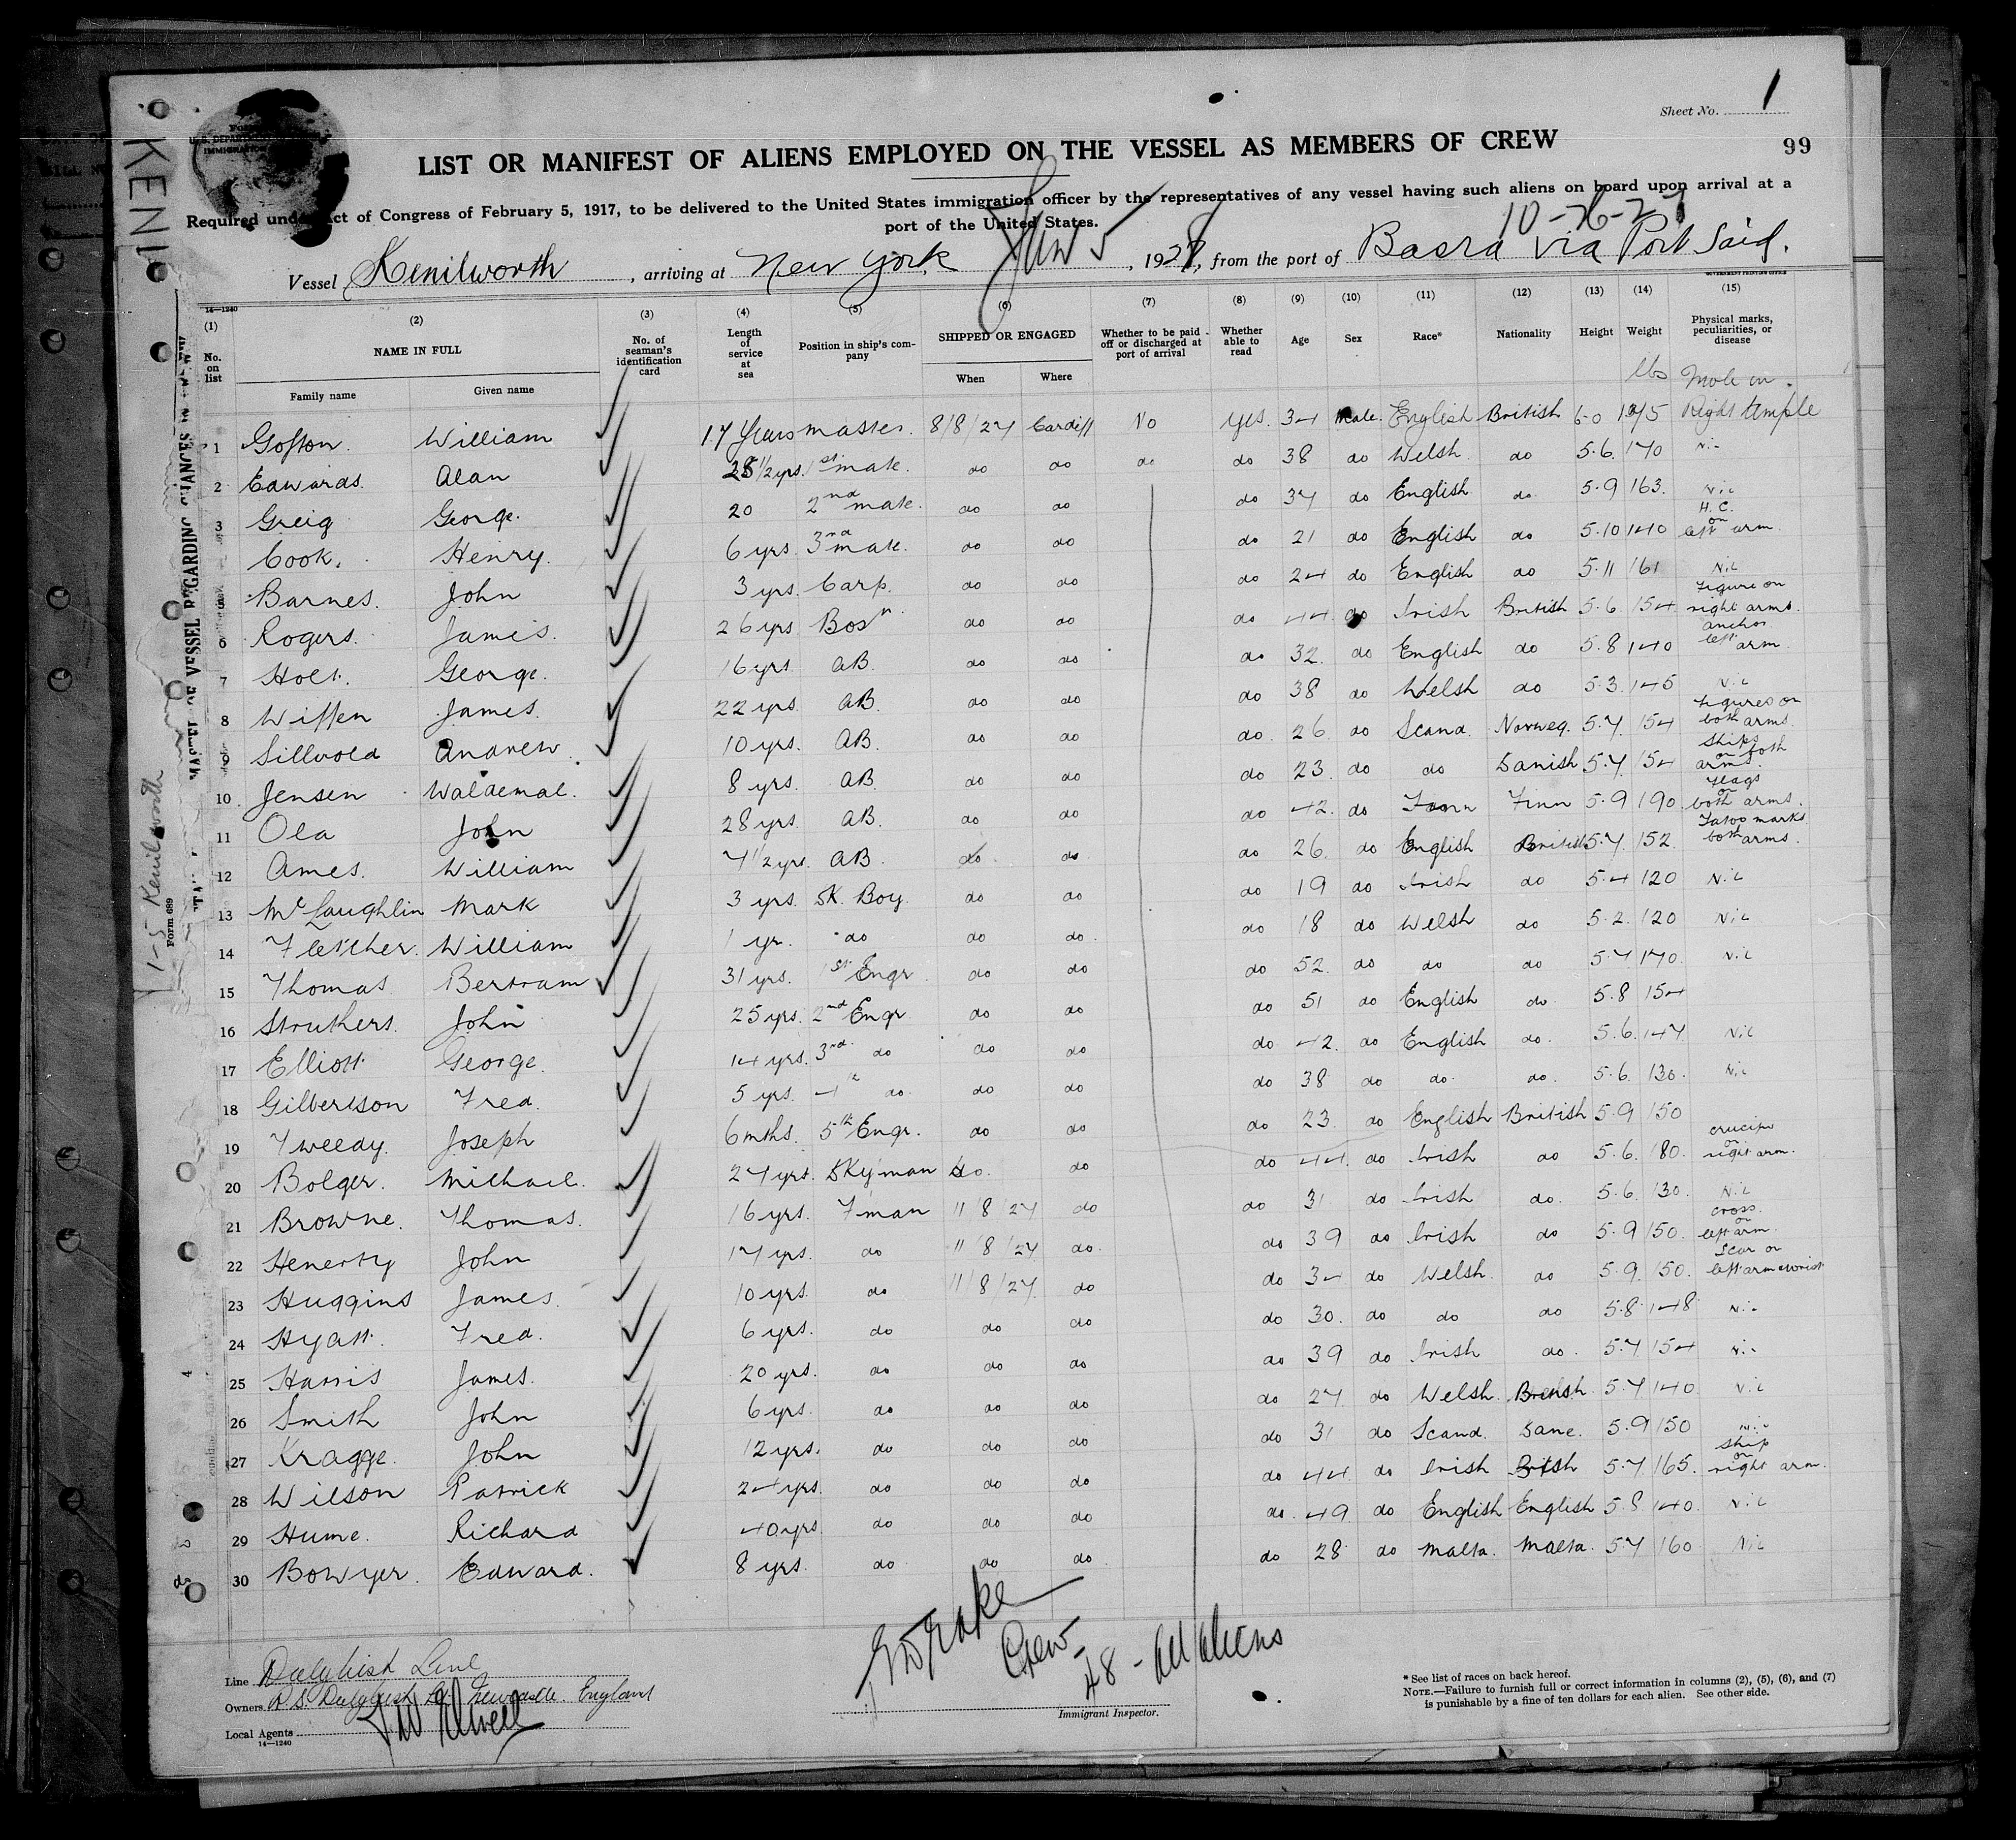 Sheet No. 1
LIST OR MANIFEST OF ALIENS EMPLOYED ON THE VESSEL AS MEMBERS OF CREW
99
Required under Act of Congress of February 5, 1917, to be delivered to the United States immigration officer by the representatives of any vessel having such aliens on board upon arrival at a
port of the United States.
10-26-27
Vessel Kenilworth, arriving at New York Jan 5, 1928, from the port of Basra via Port Said.
GOVERNMENT PRINTING OFFICE
14—1240
(1) (2) (3) (4) (5) (6) (7) (8) (9) (10) (11) (12) (13) (14) (15)
No. on list NAME IN FULL No. of seaman's identification card Length of service at sea Position in ship's company SHIPPED OR ENGAGED Whether to be paid off or discharged at port of arrival Whether able to read Age Sex Race* Nationality Height Weight Physical marks, peculiarities, or disease
Family name Given name When Where lbs
1 Gofton. William 17 Years Master. 8/8/27 Cardiff No Yes. 34 Male. English British 6-0 175 Mole on Right temple
2 Edwards. Alan 25 1/2 yrs. 1st mate. do do do do 38 do Welsh. do 5.6. 170
3 Greig George. 20 2nd mate. do do do 37 do English do 5.9 163. Nil
4 Cook. Henry. 6 yrs. 3rd mate. do do do 21 do English do 5.10 140 H.C. on left arm.
5 Barnes. John 3 yrs. Carp. do do do 24 do English do 5.11 161 Nil
6 Rogers. James. 26 yrs Bosn do do do 44 do Irish British 5.6. 154 Figure on right arms.
7 Holt. George. 16 yrs. AB. do do do 32. do English do 5.8 140 anchor left arm.
8 Wiffen James. 22 yrs. AB. do do do 38 do Welsh do 5.3. 145 Nil
9 Sillvold Andrew. 10 yrs. AB. do do do. 26. do Scand. Norweg. 5.7. 154 Figures on both arms.
10 Jensen Waldemal. 8 yrs. AB. do do do 23. do do Danish 5.7. 154 Ships on both arms.
11 Ola John 28 yrs. AB. do do do 42. do Finn Finn 5.9 190 Flags on both arms.
12 Ames. William 7 1/2 yrs. AB. do do do 26. do English British 5.7. 152. Tatoo marks both arms.
13 McLaughlin Mark 3 yrs. Dk. Boy. do do do 19 do Irish do 5.4 120 Nil
14 Fletcher. William 1 yr. do do do. do 18 do Welsh do 5.2. 120 Nil
15 Thomas Bertram 31 yrs. 1st Engr. do do do 52. do do do 5.7 170. Nil
16 Struthers. John 25 yrs. 2nd Engr do do do 51 do English do 5.8 154
17 Elliott George. 14 yrs. 3rd do do do do 42. do English do. 5.6. 147 Nil
18 Gilbertson Fred. 5 yrs. 4th do do do do 38 do do. do. 5.6. 130. Nil
19 Tweedy. Joseph 6 mths. 5th Engr. do do do 23. do English British 5.9 150
20 Bolger. Michael. 27 yrs. Dkyman do. do do 44. do Irish do 5.6. 180. on right arm.
21 Browne. Thomas. 16 yrs. F'man 11/8/27 do do 31 do Irish do. 5.6. 130. Nil
22 Henerty John 17 yrs. do 11/8/27 do. do 39 do Irish do 5.9 150. cross. on left arm.
23 Huggins James. 10 yrs. do 11/8/27. do do 34 do Welsh. do 5.9. 150. Scar on left arm & wrist
24 Hyatt. Fred. 6 yrs. do do do do 30. do do do 5.8. 148
25 Harris James. 20 yrs. do do do do 39 do Irish do. 5.7. 154
26 Smith John 6 yrs. do do do do 27. do Welsh. British. 5.7 140. Nil
27 Kragge. John 12 yrs. do do do do 31 do Scand. Dane. 5.9 150
28 Wilson Patrick 24 yrs. do do do do 44. do Irish British 5.7. 165. ship on right arm.
29 Hume. Richard 40 yrs do do do do. 49. do English English 5.8 140. Nil
30 Bowyer. Edward. 8 yrs. do do do do 28 do Malta. Malta. 5.7 160 Nil
Line Dalgliesh Line
Owners R.S. Dalgliesh Newcastle. England
Local Agents
14—1240
Crew
48 - all aliens
Immigrant Inspector.
* See list of races on back hereof.
NOTE.—Failure to furnish full or correct information in columns (2), (5), (6), and (7)
is punishable by a fine of ten dollars for each alien. See other side.
KENIL
1-5 Kenilworth
Form 689